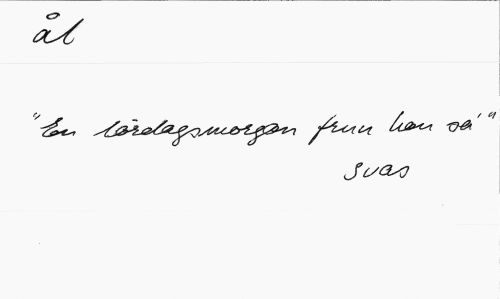 ål
"En lördagsmorgon frun hon sa'"
svas